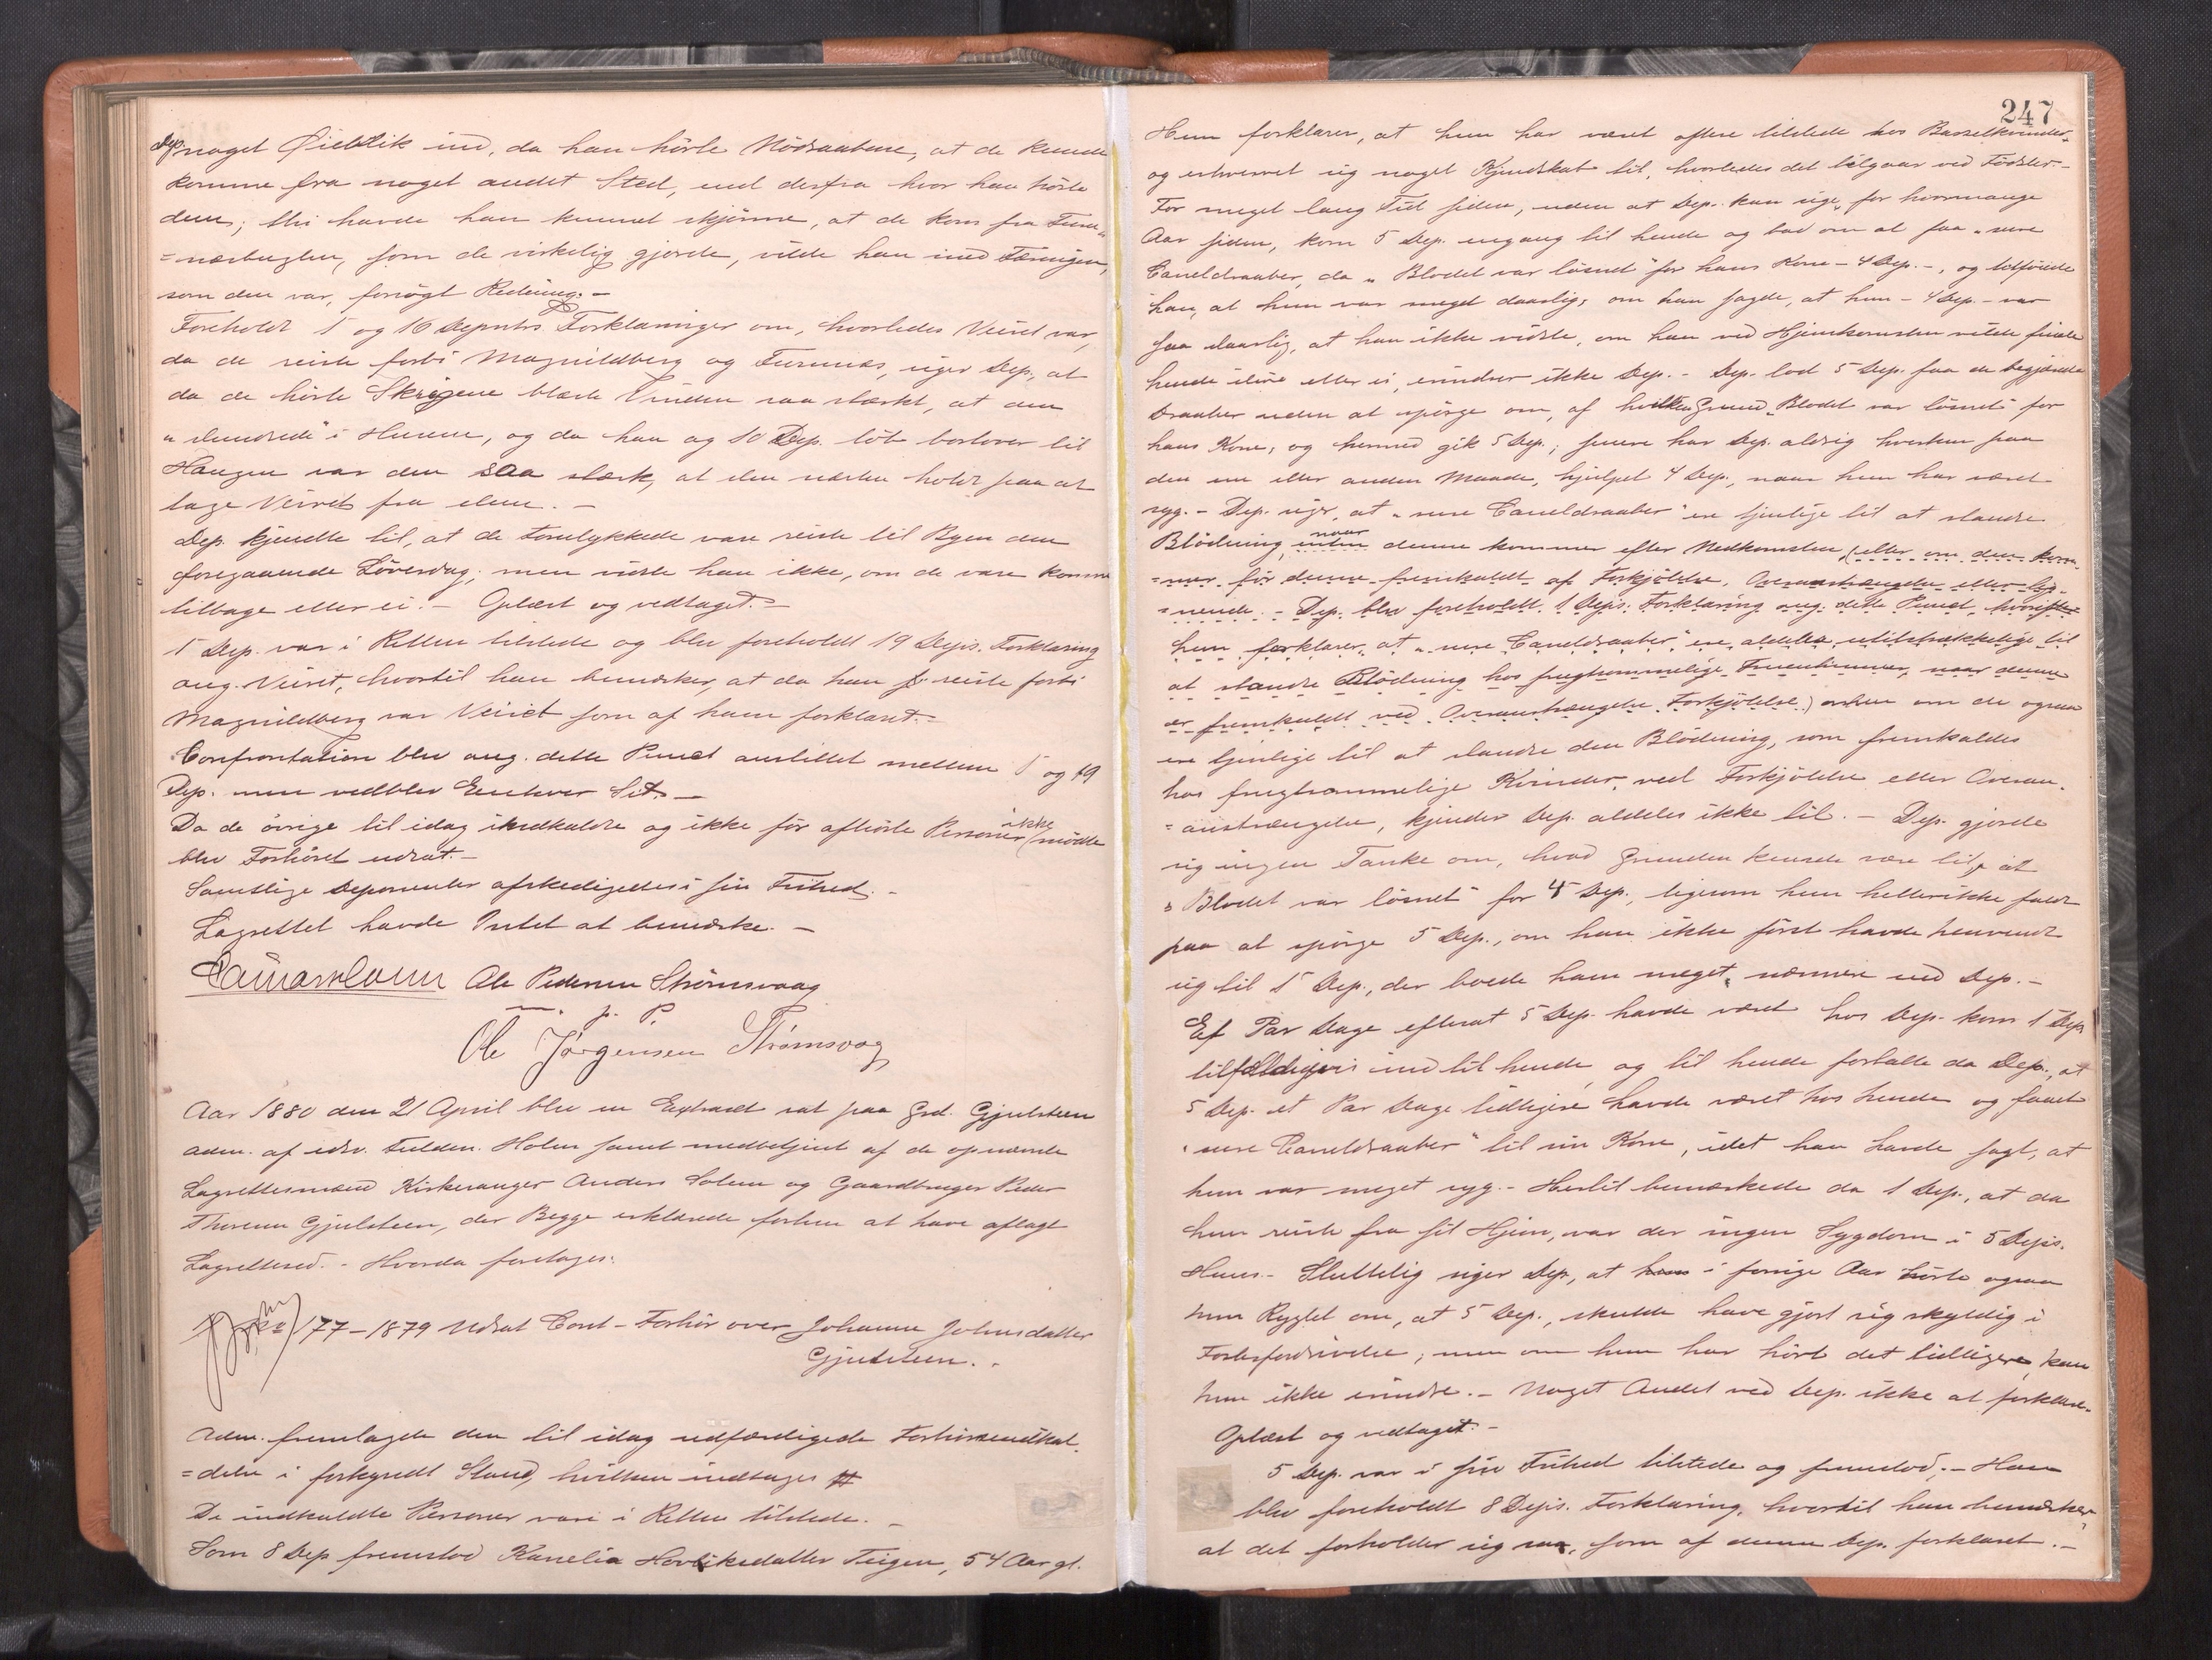 Dep. noget Øieblik ind, da han hørte Nødraabene, at de kunde
komme fra noget andet Sted, end derfra hvor han hørte
dem; thi havde han kunnet skjønne, at de kom fra Furu-
=næsbugten, som de virkelig gjorde, vilde han med Færingen,
som den var, forsøgt Redning. -
Foreholdt 1 og 16 Depntrs Forklaringer om, hvorledes Veiret var,
da de reiste forbi Magnildberg og Furunæs, siger Dep., at
da de hørte Skrigene blæste Vinden saa stærkt, at den
"dundrede" i Husene, og da han og 10 Dep. løb bortover til
Haugen var den saa stærk, at den næsten holdt paa at
tage Veiret fra dem. -
Dep. kjendte til, at de Forulykkede vare reiste til Byen den
foregaaende Løverdag; men vidste han ikke, om de vare komne
tilbage eller ei. - Oplæst og vedtaget. -
1 Dep. var i Retten tilstede og blev foreholdt 19 Depts. Forklaring
ang. Veiret, hvortil han bemærker, at da han reiste forbi
Magnildberg var Veiret som af ham forklaret. -
Confrontation blev ang. dette Punct anstillet mellem 1 og 19
Dep. men vedblev Enhver Sit. -
Da de øvrige til idag indkaldte og ikke før afhørte Personer ikke mødte
blev Forhøret udsat. -
Samtlige Deponenter afskedigedes i sin Frihed. -
Lagrettet havde Intet at bemærke. -
Ole Pedersen Strømsvaag
m. p. P.
Ole Jørgensen Strømsvog
Aar 1880 den 21 April blev en Extraret sat paa Grd. Gjulsteen
adm. af edsv. Fuldm. Holm samt medbetjent af de opnævnte
Lagrettesmænd Kirkesanger Anders Solem og Gaardbruger Peder
Thoresen Gjulsteen, der Begge erklærede forhen at have aflagt
Lagretteed. - Hvorda foretages:
177-1879 Udsat Cont-Forhør over Johanne Johnsdatter
Gjulsteen. -
Adm. fremlagde den til idag udfærdigede Forhørsindkal-
=delse i forkyndt Stand, hvilken indtages #
De indkaldte Personer vare i Retten tilstede. -
Som 8 Dep fremstod Kanelia Henriksdatter Teigen, 54 Aar gl.
247
Hun forklarer, at hun har været oftere tilstede hos Barselkvinder
og erhvervet sig noget Kjendskab til, hvorledes det tilgaar ved Fødsler. -
For meget lang Tid siden, uden at Dep. kan sige, for hvormange
Aar siden, kom 5 Dep. engang til hende og bad om at faa "sure
Caneldraaber, da "Blodet var løsnet" for hans Kone - 4 Dep. -, og tilføiede
han, at hun var meget daarlig; om han sagde, at hun - 4 Dep. - var
saa daarlig, at han ikke vidste, om han ved Hjemkomsten vilde finde
hende ilive eller ei, erindrer ikke Dep. - Dep. lod 5 Dep. faa de begjærede
Draaber uden at spørge om, af hvilken Grund "Blodet var løsnet" for
hans Kone; og hermed gik 5 Dep.; senere har Dep. aldrig hverken paa
den ene eller anden Maade, hjulpet 4 Dep., naar hun har været
syg. - Dep. siger, at "sure Caneldraaber" ere tjenlige til at standse
Blødning, naar denne kommer efter Nedkomsten (eller om den kom-
=mer før denne fremkaldt af Forkjølelse, Overanstrængelse eller lig-
=nende. - Dep. blev foreholdt 1 Depts. Forklaring ang. dette Punct, hvorefter
hun forklarer, at "sure Caneldraaber" ere aldeles utilstrækkelige til
at standse Blødning hos frugtsommelige Fruentimmer, naar denne
er fremkaldt ved Overanstrængelse, Forkjølelse) men om de ogsaa
ere tjenlige til at standse den Blødning, som fremkaldes
hos frugtsommelige Kvinder, ved Forkjølelse eller Overan-
=anstrængelse, kjender Dep. aldeles ikke til. - Dep. gjorde
sig ingen Tanke om, hvad Grunden kunde være til, at
"Blodet var løsnet" for 4 Dep., ligesom hun hellerikke faldt
paa at spørge 5 Dep., om han ikke først havde henvendt
sig til 1 Dep., der boede ham meget nærmere end Dep. -
Et Par Dage efterat 5 Dep. havde været hos Dep. kom 1 Dep.
tilfældigvis ind til hende, og til hende fortalte da Dep., at
5 Dep. et Par Dage tidligere havde været hos hende og faaet
"sure Caneldraaber" til sin Kone, idet han havde sagt, at
hun var meget syg. - Hertil bemærkede da 1 Dep., at da
hun reiste fra sit Hjem, var der ingen Sygdom i 5 Depts.
Huus. - Sluttelig siger Dep, at i forrige Aar hørte ogsaa
hun Rygtet om, at 5 Dep., skulde have gjort sig skyldig i
Fosterfordrivelse; men om hun har hørt det tidligere, kan
hun ikke erindre. - Noget Andet ved Dep. ikke at forklare.
Oplæst og vedtaget. -
5 Dep. var i sin Frihed tilstede og fremstod. - Han
blev foreholdt 8 Depts. Forklaring, hvortil han bemærker,
at det forholder sig saa, som af denne Dep. forklaret. -